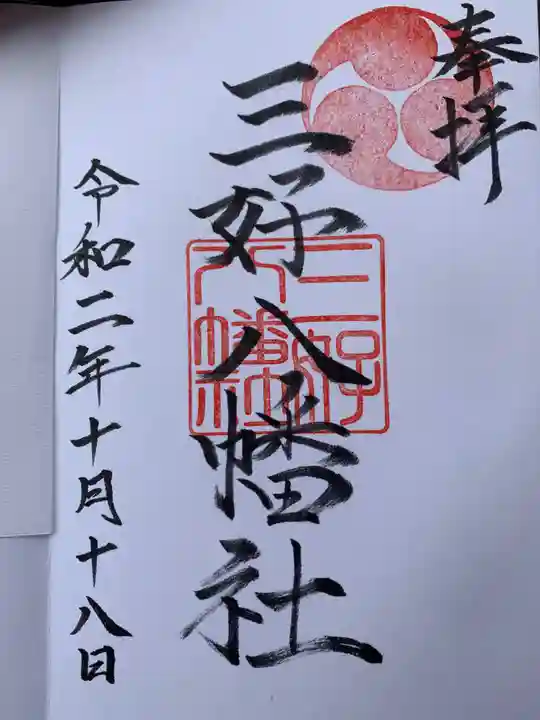 奉拝
三好八幡社
三好八幡社
令和二年十月十八日